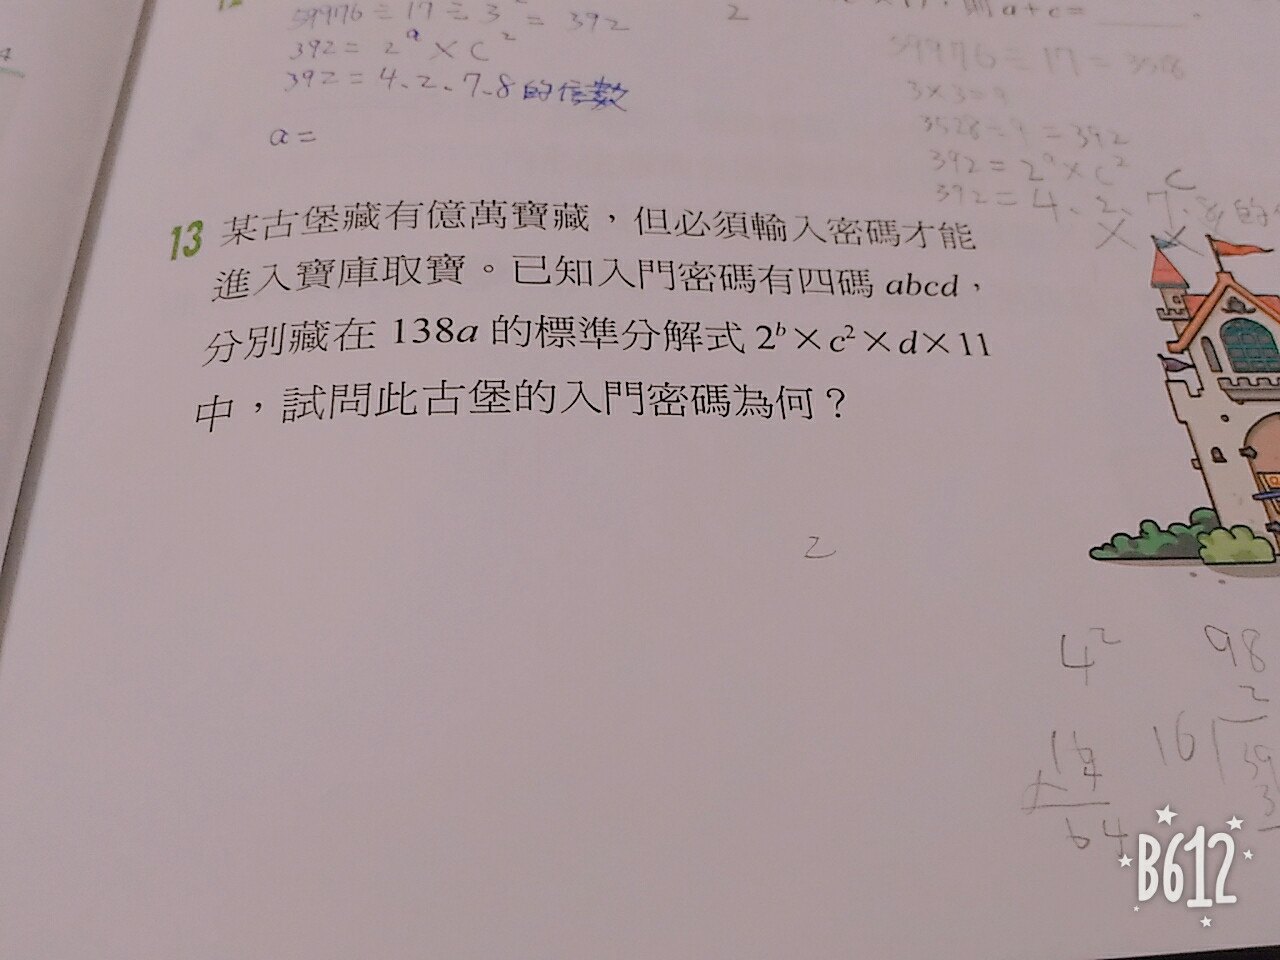 則 a+c=
59976÷17÷3²=392
392=2ᵃ×c²
392=4、2、7、8的倍數
a=
2
59976÷17=3528
3×3=9
3528÷9=392
392=2ᵃ×c²
392=4、2、7、
13 某古堡藏有億萬寶藏，但必須輸入密碼才能
進入寶庫取寶。已知入門密碼有四碼 abcd，
分別藏在 138a 的標準分解式 2ᵇ×c²×d×11
中，試問此古堡的入門密碼為何？
2
4²
98
2
16
64
B612